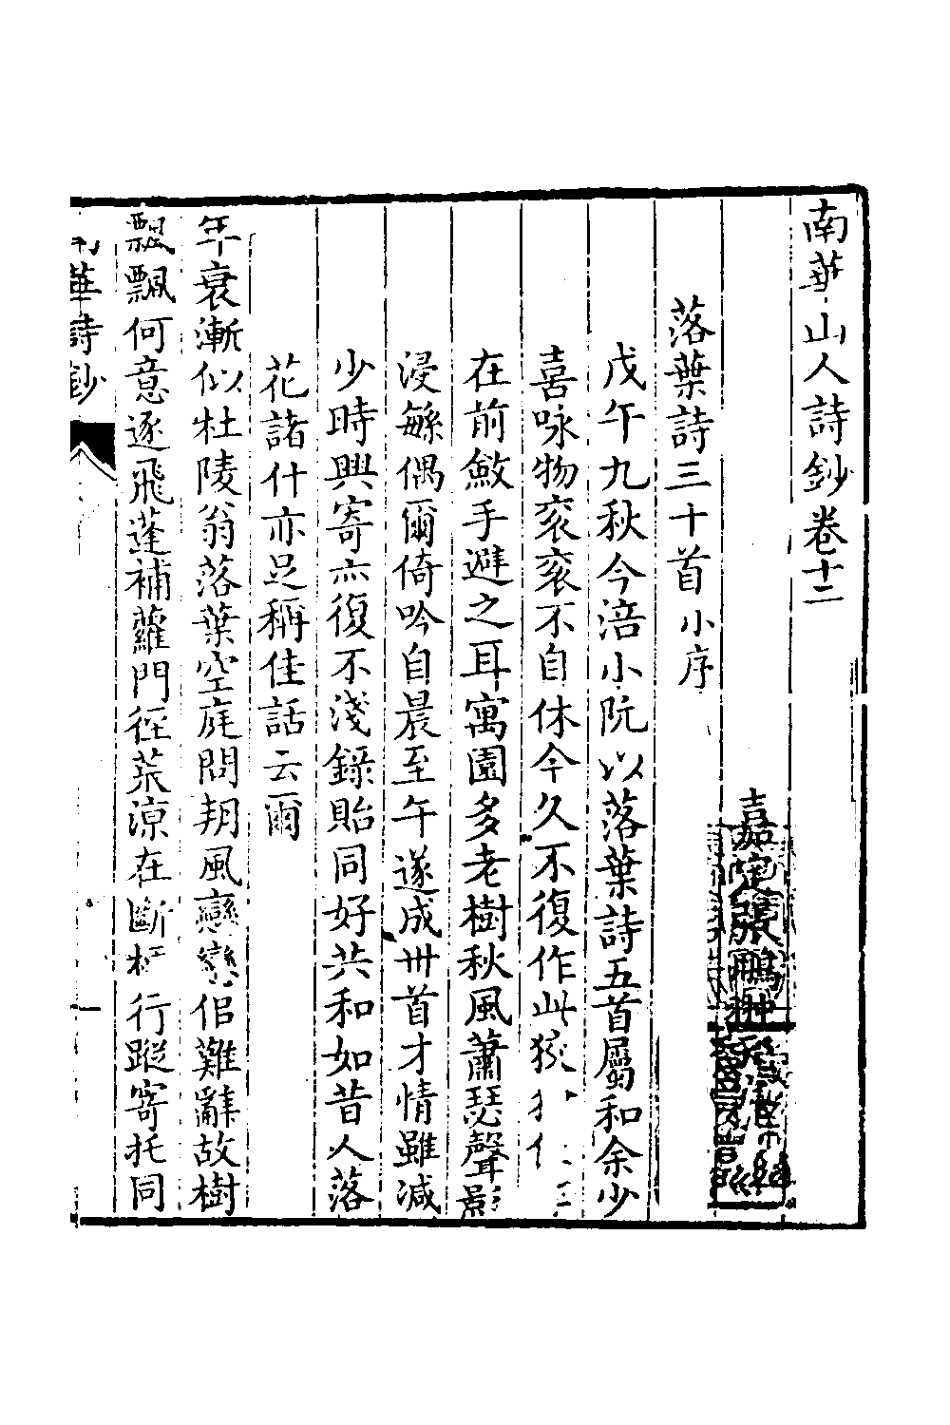 南華山人詩鈔卷十二
嘉定張鵬翀
落葉詩三十首小序
戊午九秋今涪小阮以落葉詩五首屬和余少
喜咏物衮衮不自休今久不復作此
在前斂手避之耳寓園多老樹秋風蕭瑟聲影
浸緐偶爾倚吟自晨至午遂成卅首才情雖减
少時興寄亦復不淺錄貽同好共和如昔人落
花諸什亦足稱佳話云爾
年衰漸似杜陵翁落葉空庭問朔風戀戀侣難辭故樹
飄飄何意逐飛蓬補蘿門徑荒凉在斷梗行蹤寄托同
華詩鈔